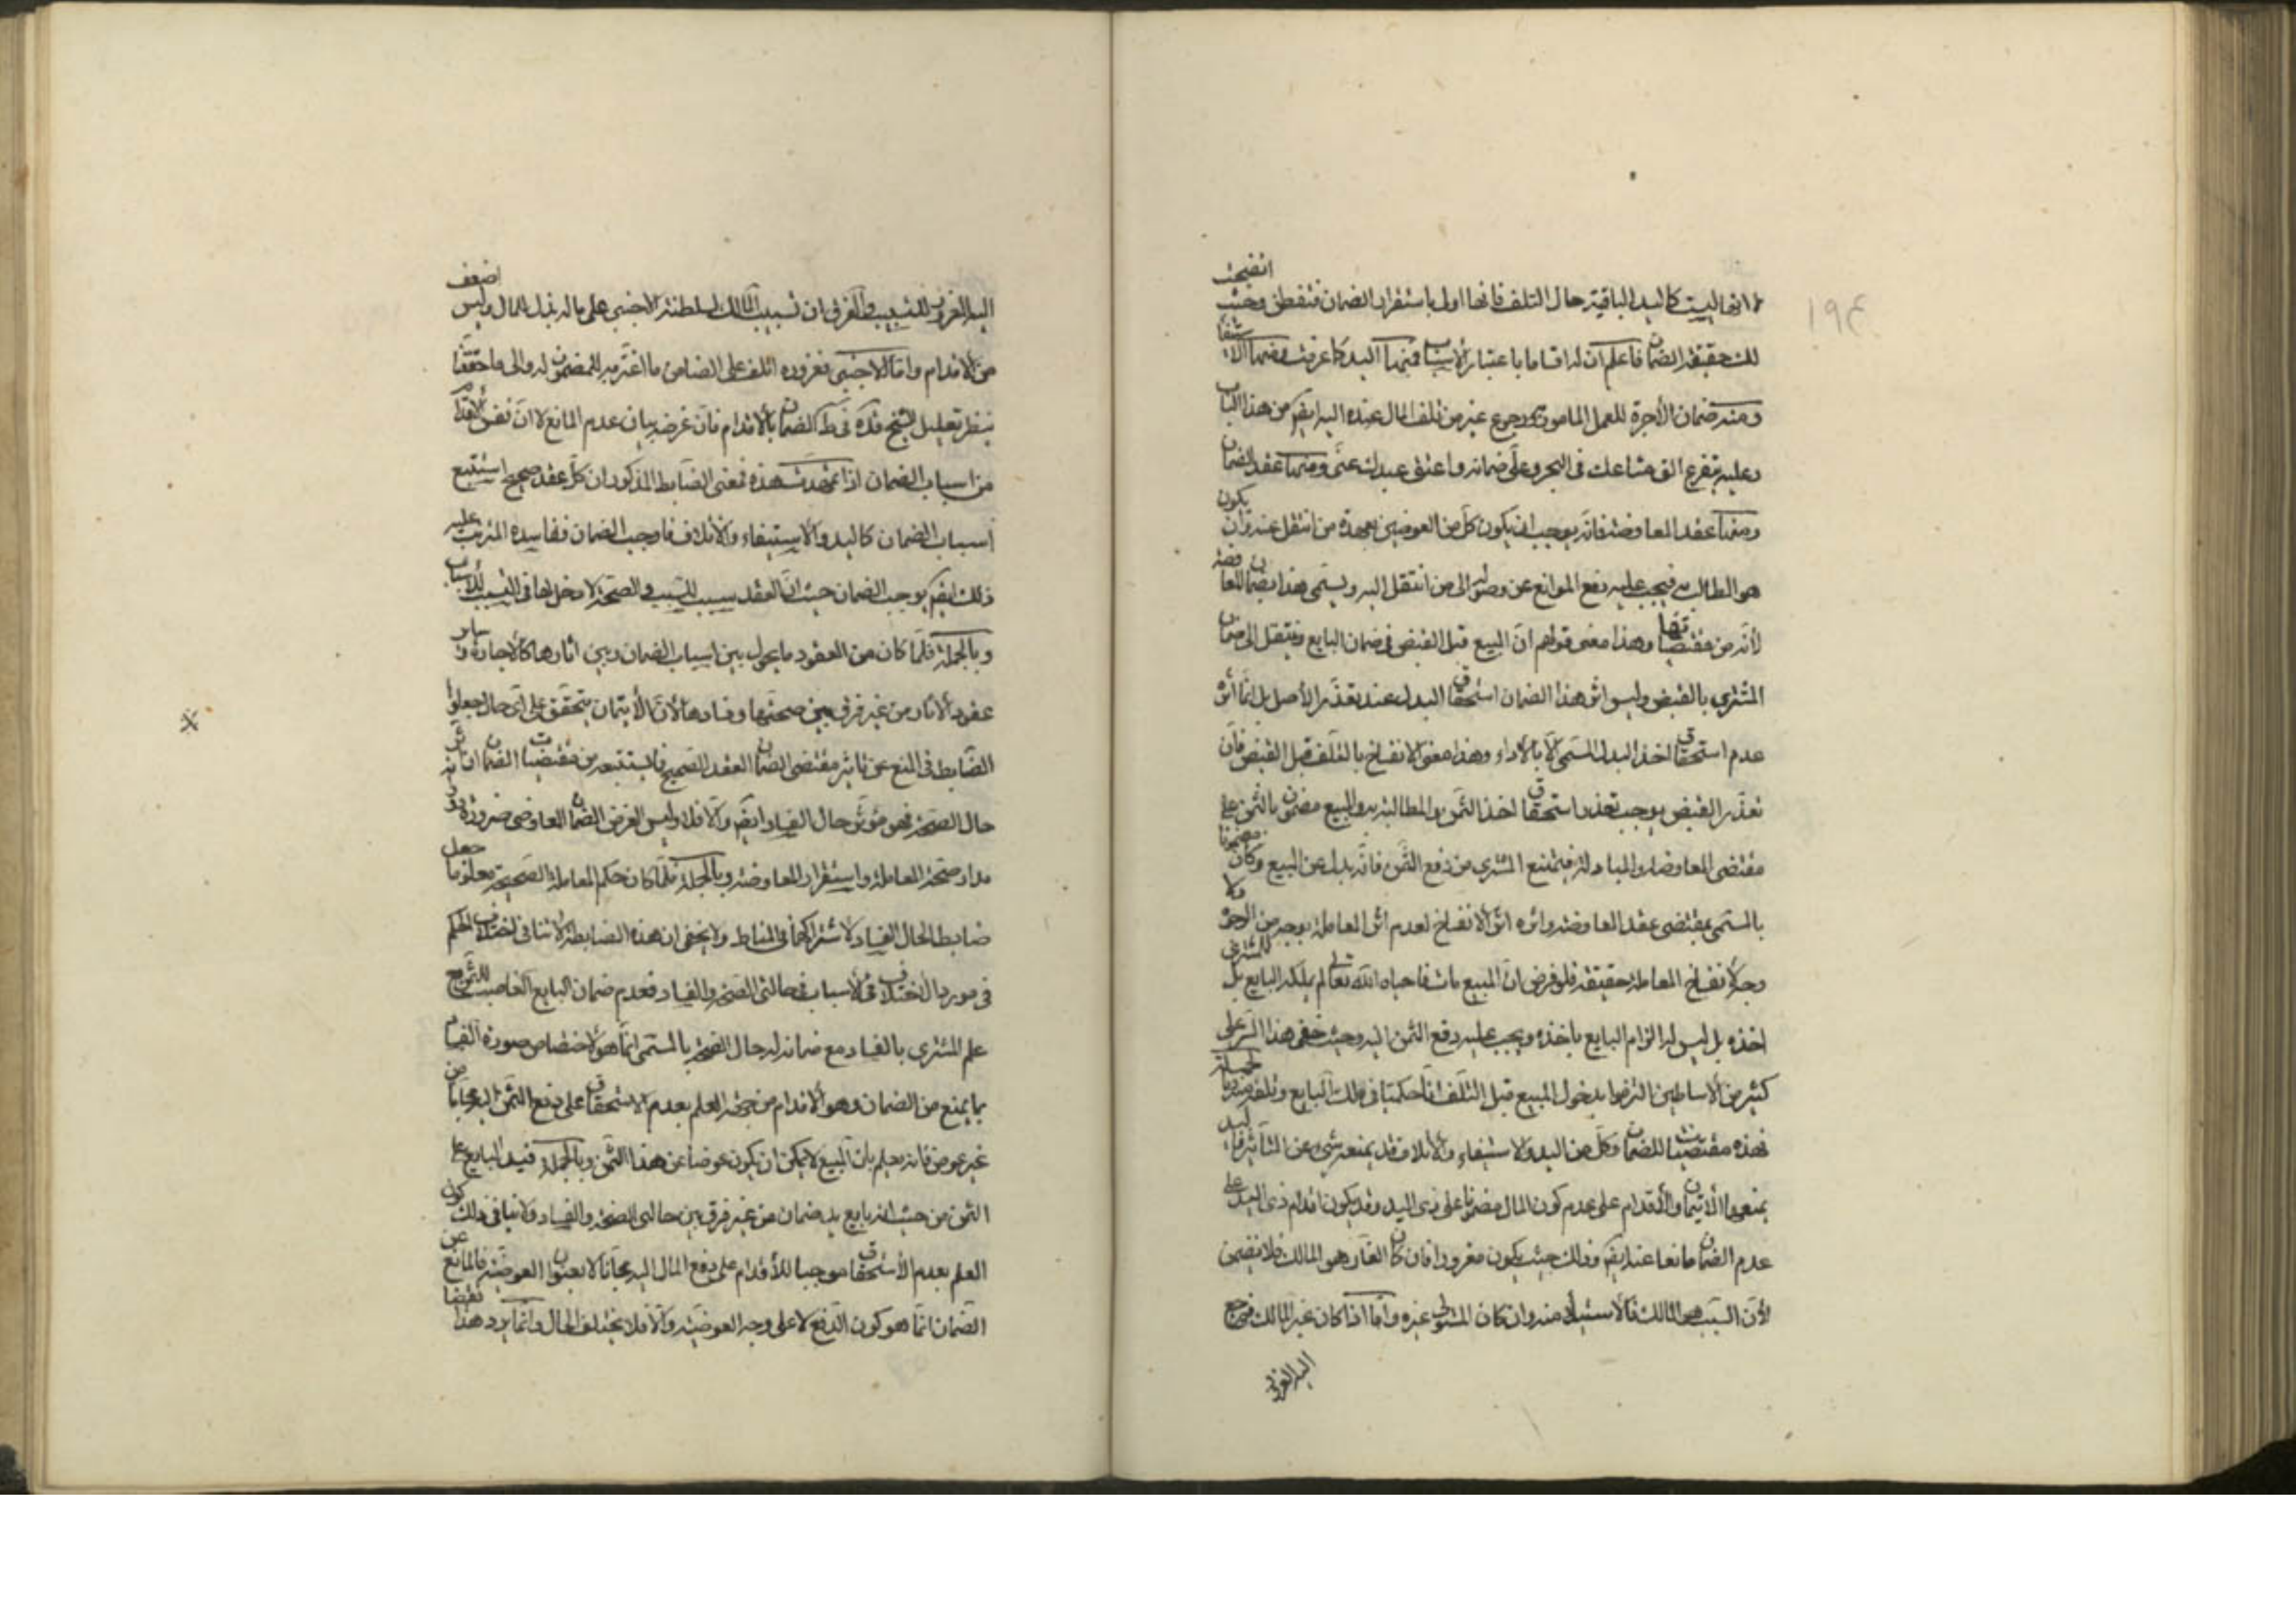 ١٩٤
انها ليست كاليد الباقية حال التلف فانها اولى باستقرار الضمان فتفطن وحيث اتضحت
لك حقيقة الضمان فاعلم ان له اقساما باعتبار الاسباب فمنها اليد كما عرفت ومنها الاستيفاء
ومنه ضمان الأجرة للعمل المامور به ورجوع غير من تلف المال عنده اليه ايضا من هذا الباب
وعليه يتفرع الق متاعك في البحر وعلي ضمانه واعتق عبدك عني ومنها عقد الضمان
ومنها عقد المعاوضة فانه يوجب ان يكون كل من العوضين بعهدة من انتقل عنه وان يكون
هو الطالب فيجب عليه دفع الموانع عن وصوله الى من انتقل اليه ويسمى هذا بضمان المعاوضة
لأنه من مقتضياتها وهذا معنى قولهم ان المبيع قبل القبض في ضمان البايع وينتقل الى ضمان
المشتري بالقبض وليس اثر هذا الضمان استحقاق البدل عند تعذر الأصل بل انما أثره
عدم استحقاق اخذ البدل المسمى الا بالأداء وهذا معنى الانفساخ بالتلف قبل القبض فان
تعذر القبض يوجب تعذر استحقاق اخذ الثمن والمطالبة به والمبيع مضمون بالثمن على
مقتضى المعاوضة والمبادلة فيمتنع المشتري من دفع الثمن فانه بدل عن المبيع وكان مضمونا
بالمسمى بمقتضى عقد المعاوضة واثره اثر الانفساخ لعدم اثر المعاملة بوجه من الوجوه ولا
وجه لانفساخ المعاملة حقيقة فلو فرض ان المبيع مات فاحياه الله تعالى لم يملكه البايع بل للمشتري
اخذه بل ليس له الزام البايع باخذه ويجب عليه دفع الثمن اليه وحيث خفى هذا السر على
كثير من الاساطين التزموا بدخول المبيع قبل التلف آنا حكميا في ملك البايع وتلفه
فهذه مقتضيات للضمان وكل من اليد والاستيفاء والاتلاف قد يمنعه شيء عن التأثير فاليد
يمنعها الائتمان والاقدام على عدم كون المال مضمونا على ذى اليد وقد يكون اقدام ذى اليد على
عدم الضمان مانعا عنه ايضا وذلك حيث يكون مغرورا فان كان الغار هو المالك فلا تضمين
لأن السبب هو المالك فالاستيلاء منه وان كان المستولى غيره واما اذا كان غير المالك فمرجع
اليد الغرور
اليد الغرور للتسبيب والفرق ان تسبيب المالك لسلطنة الاجنبي على ماله بذل للمال وليس اضعف
من الاقدام واما الاجنبي فغروره اتلف على الضامن ما اغترمه للمضمون له والى ما حققنا
ينظر تعليل الشيخ قده في ط الضمان بالأقدام فان غرضه بيان عدم المانع لا ان نفس الاقدام
من اسباب الضمان اذا تمهدت هذه فمعنى الضابط المذكور ان كل عقد صحيح استتبع
اسباب الضمان كاليد والاستيفاء والأتلاف فاوجب الضمان ففاسده المترتب عليه
ذلك ايضا يوجب الضمان حيث ان العقد سبب للسبب والصحة لا مدخل لها في التسبب للأسباب
وبالجملة فلما كان من العقود ما يحول بين اسباب الضمان وبين اثارها كالاجارة وساير
عقود الأمانات من غير فرق بين صحتها وفسادها لأن الأيتمان يتحقق على اي حال جعلوا
الضابط في المنع عن تاثير مقتضى الضمان العقد الصحيح فما يستتبعه من مقتضيات الضمان ان اثر
حال الصحة فهو مؤثر حال الفساد ايضا والا فلا وليس الغرض الضمان المعاوضى ضرورة
مدار صحة المعاملة واستقرار المعاوضة وبالجملة فلما كان حكم المعاملة الصحيحة معلوما جعل
ضابطا لحال الفساد لاشتراكهما في المناط ولا يخفى ان هذه الضابطة لا تنافى اختلاف الحكم
في موارد الاختلاف في الاسباب في حالتى الصحة والفساد فعدم ضمان البايع الغاصب للثمن مع
علم المشتري بالفساد مع ضمانه له حال الصحة بالمسمى انما هو لاختصاص صورة الفساد
بما يمنع من الضمان وهو الاقدام من جهة العلم بعدم الاستحقاق على دفع الثمن اليه مجانا من
غير عوض فانه يعلم بان المبيع لا يمكن ان يكون عوضا عن هذا الثمن وبالجملة فيد البايع على
الثمن من حيث انه بايع يد ضمان من غير فرق بين حالتى الصحة والفساد ولا ينافى ذلك كون
العلم بعدم الأستحقاق موجبا للأقدام على دفع المال اليه مجانا لا بعنوان العوضية فالمانع عن
الضمان انما هو كون الدفع لا على وجه العوضية والا فلا يختلف الحال وانما يرد هذا نقضا